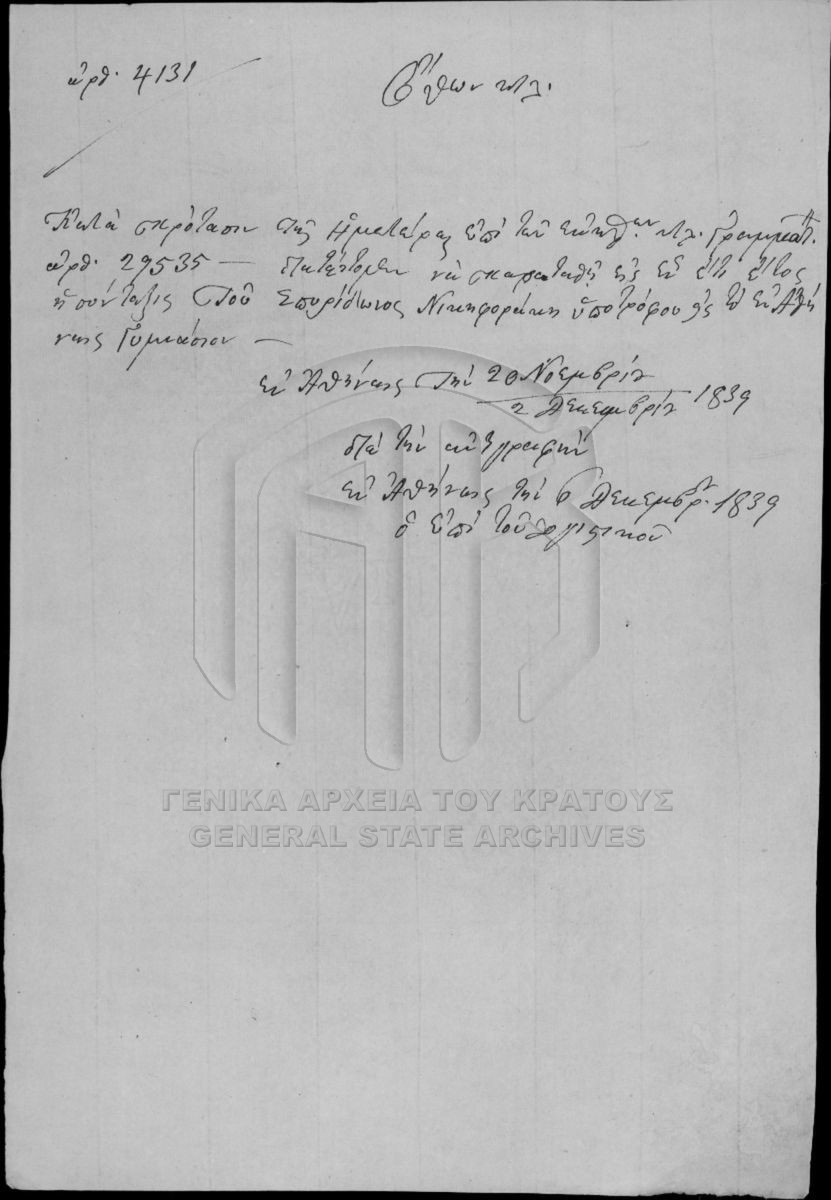 ἀρθ. 4131
Ὄθων κτλ.
Κατὰ πρότασιν τῆς ἡμετέρας ἐπὶ τῶν ἐκκλ. κτλ. Γραμματ.
ἀρθ. 29535 — διατάττομεν νὰ παραταθῇ εἰς ἓν ἔτι ἔτος
ἡ σύνταξις τοῦ Σπυρίδωνος Νικηφοράκη ὑποτρόφου εἰς τὸ ἐν Ἀθή
ναις Γυμνάσιον —
ἐν Ἀθήναις τὴν 20 Νοεμβρίου
2 Δεκεμβρίου 1839
διὰ τὴν ἀντιγραφὴν
ἐν Ἀθήναις τὴν 6 Δεκεμβρ. 1839
ὁ ἐπὶ τοῦ
ΓΕΝΙΚΑ ΑΡΧΕΙΑ ΤΟΥ ΚΡΑΤΟΥΣ
GENERAL STATE ARCHIVES